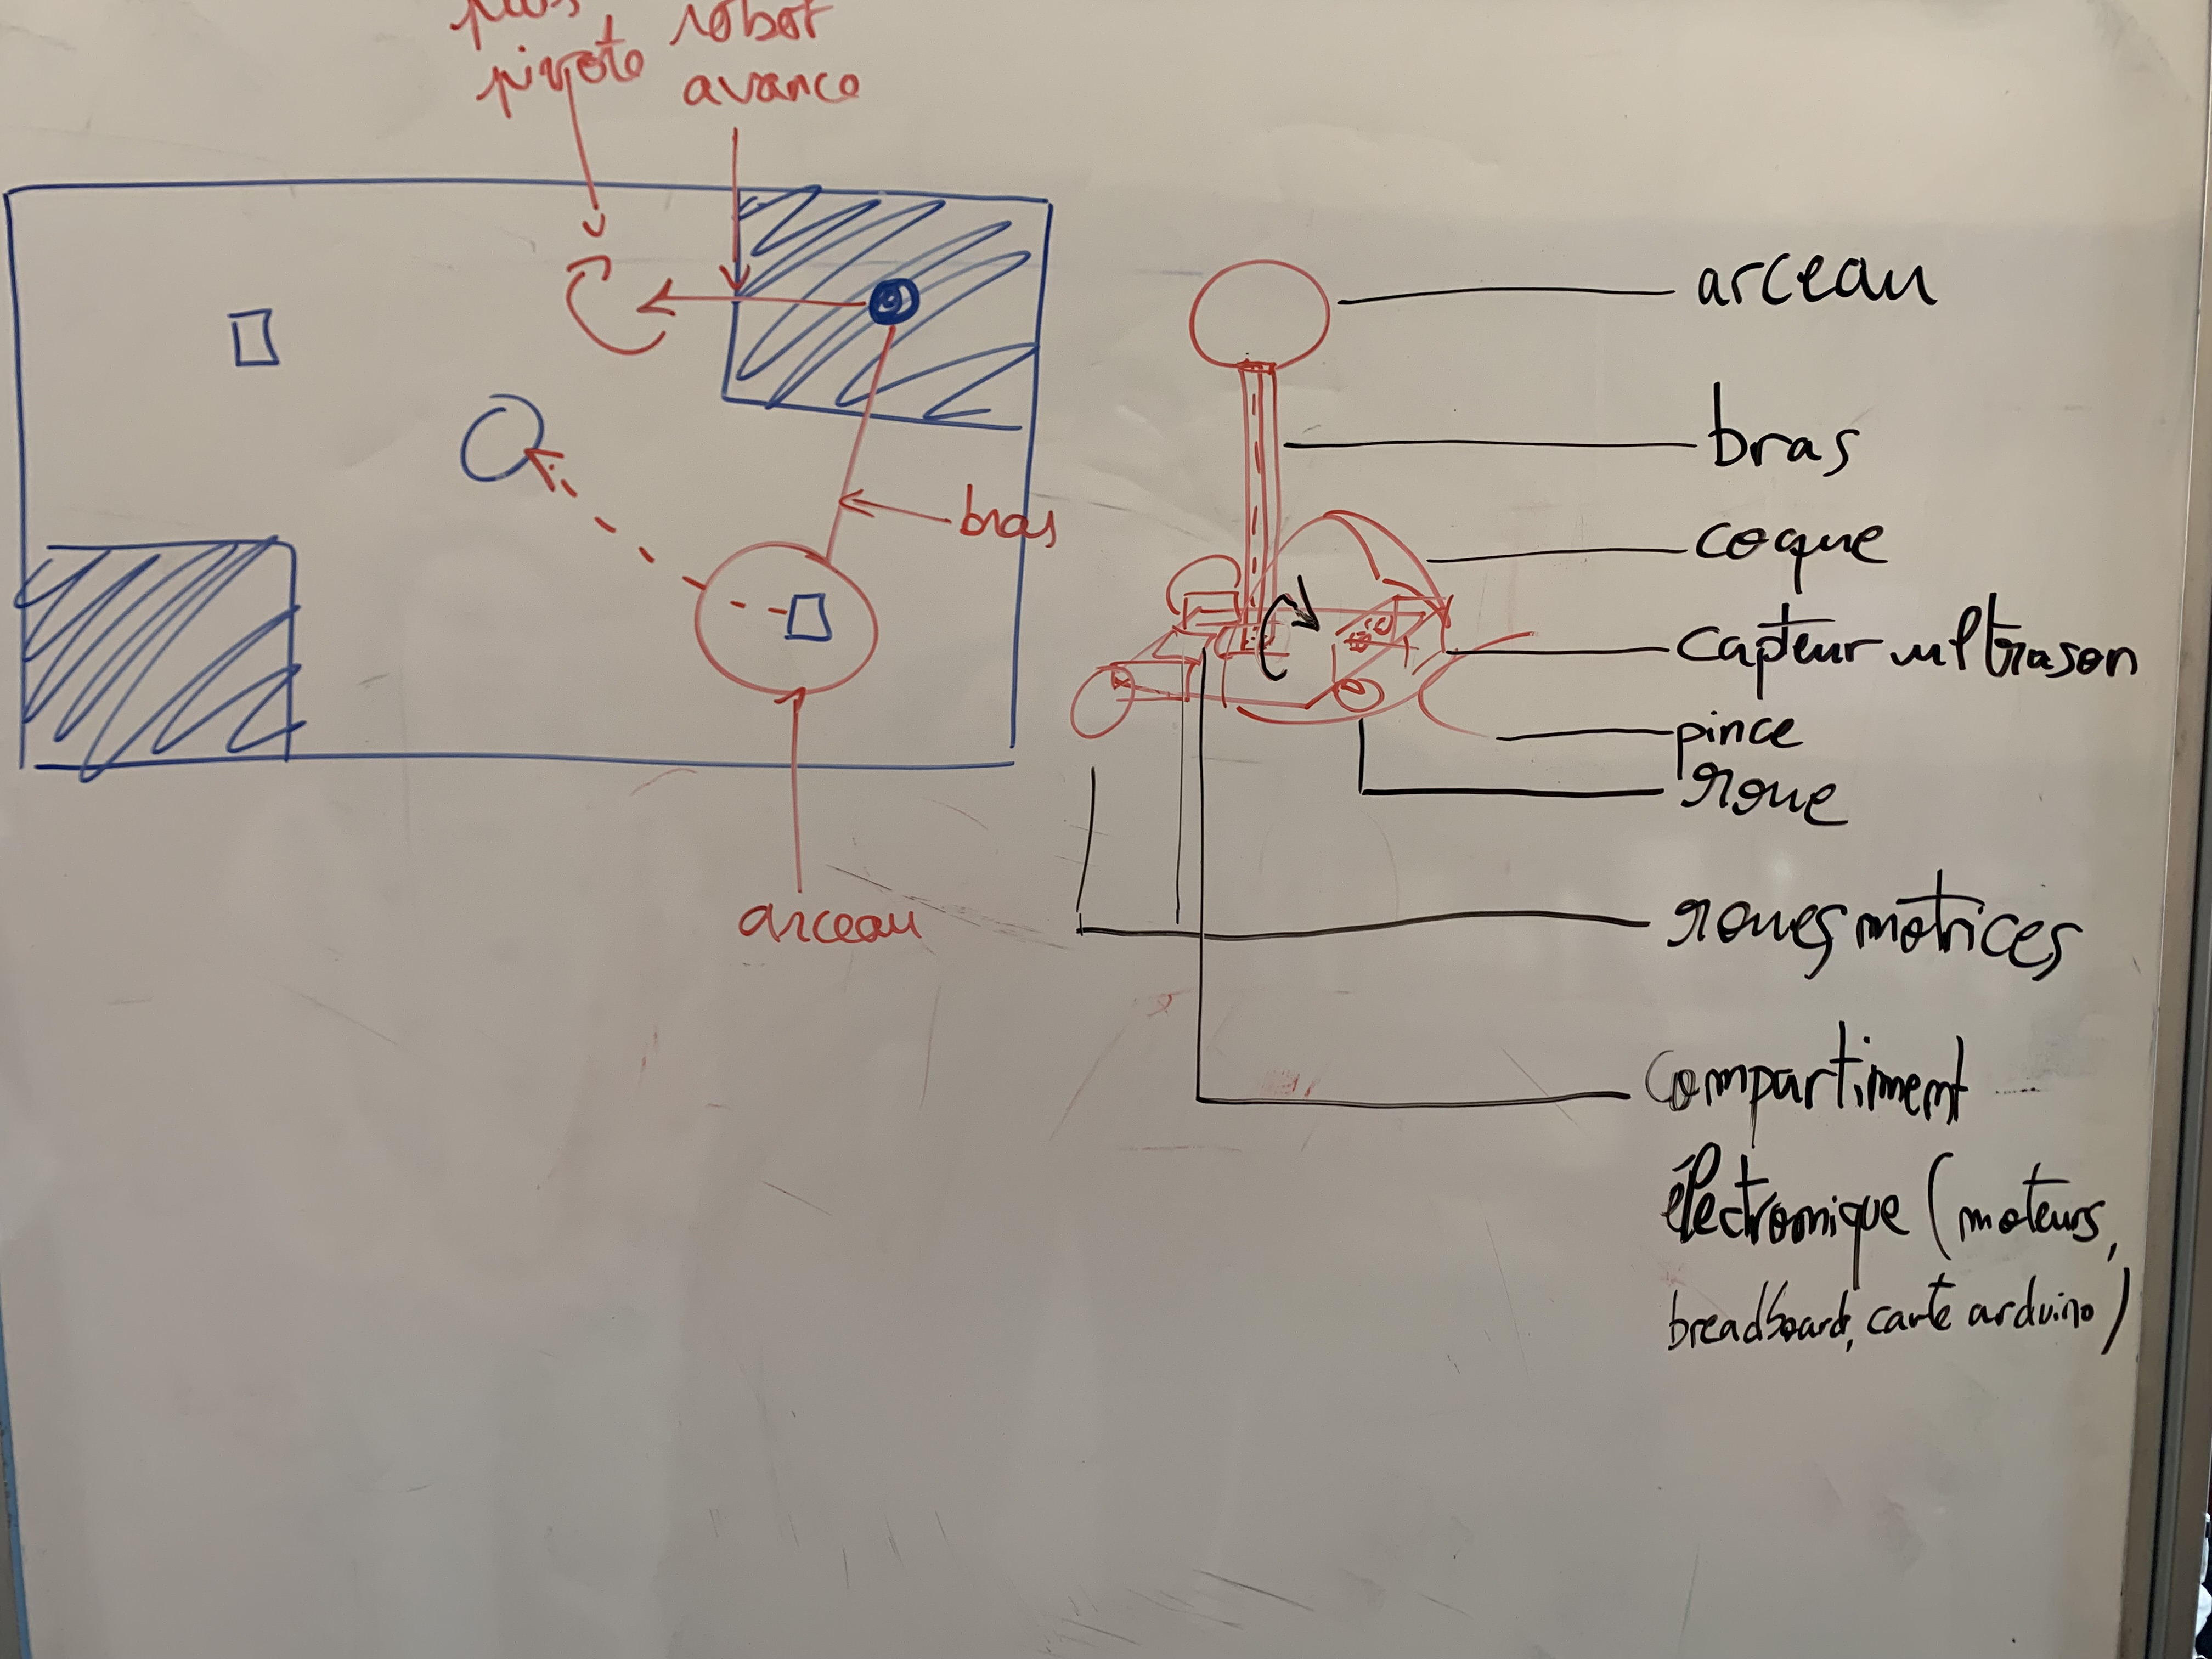 puis
pivote
robot
avance
bras
arceau
arceau
bras
coque
capteur ultrason
pince
roue
roues motrices
compartiment
électronique (moteurs,
breadboard, carte arduino)